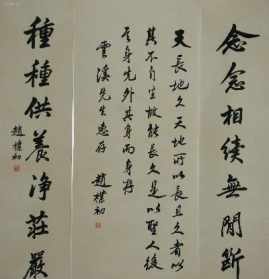 念念相續無間斷
天長地久天地所以長且久者以
其不自生故能長久是以聖人後
其身先外其身而身存
雲溪先生惠存
趙樸初
種種供養淨莊嚴
趙樸初